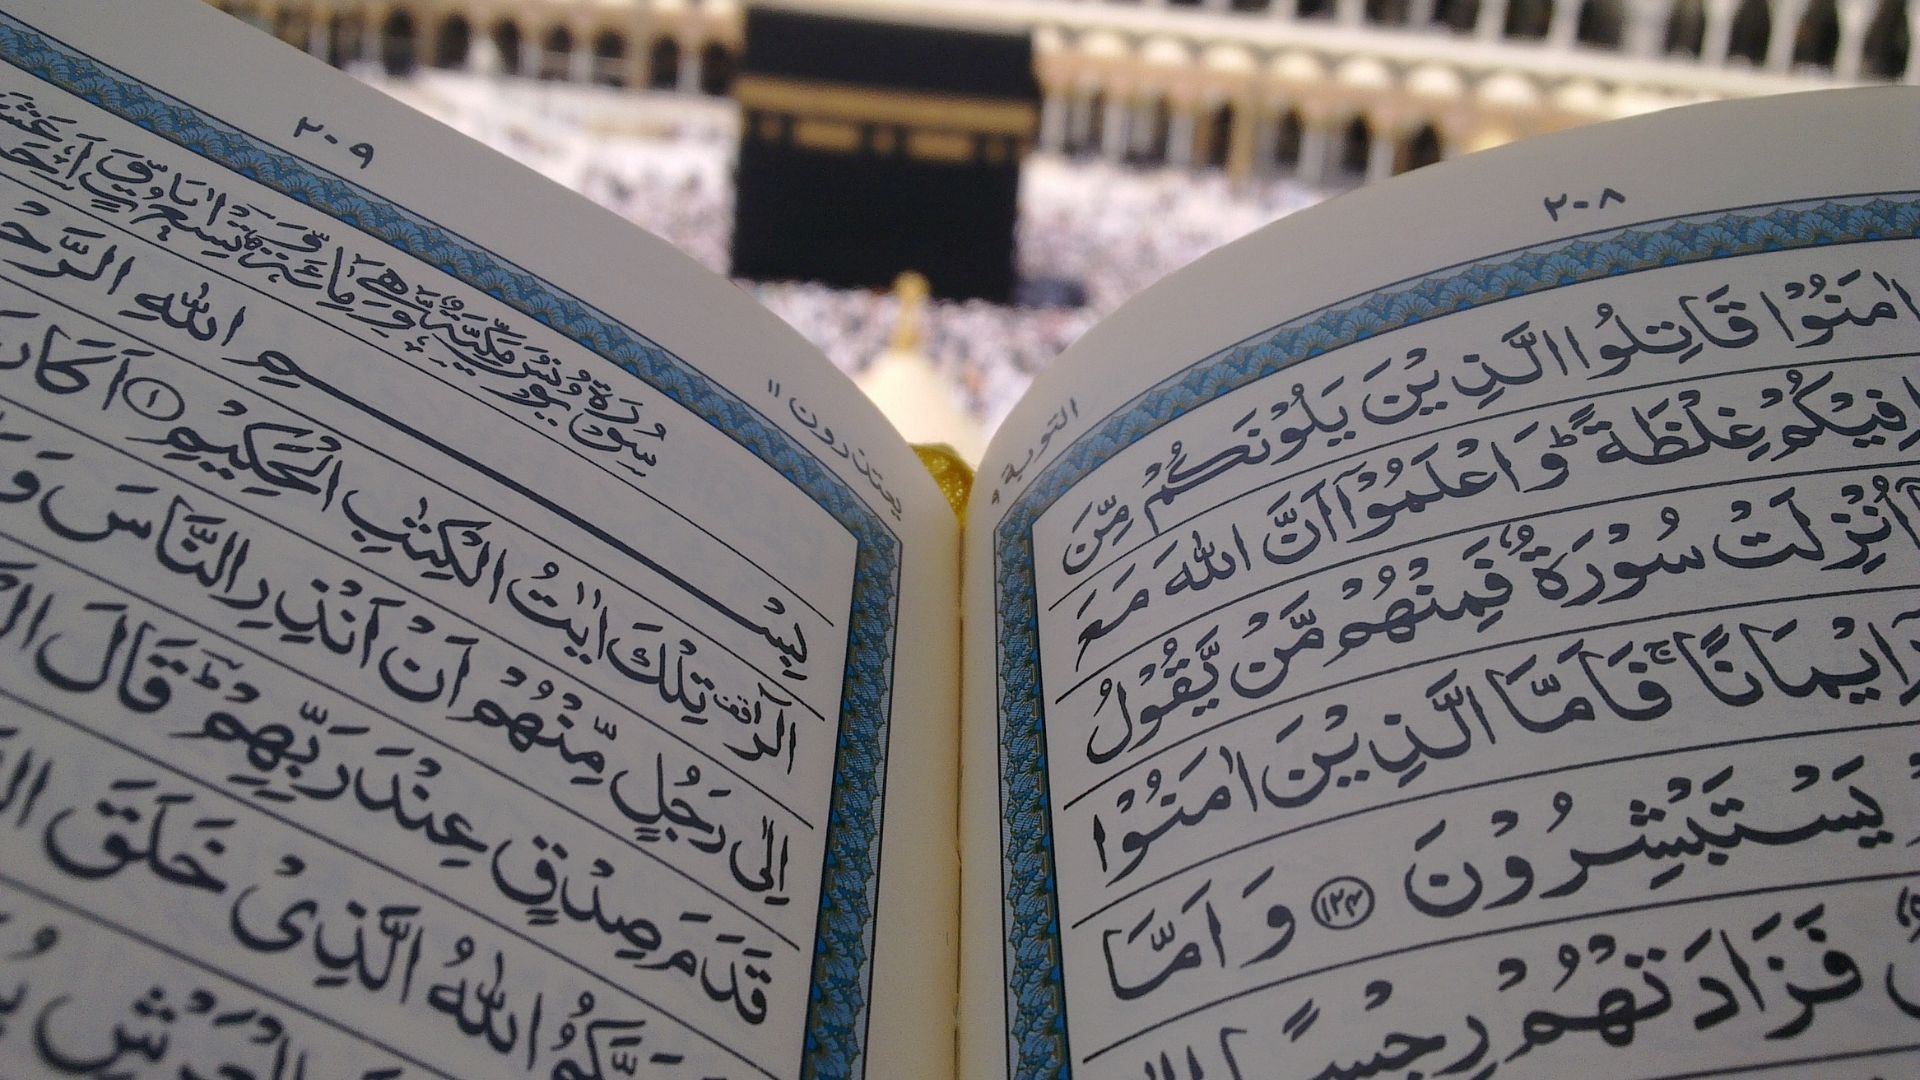 ٢٠٨
التوبة ٩
اٰمَنُوْا قَاتِلُوا الَّذِيْنَ يَلُوْنَكُمْ مِّنَ
فِيْكُمْ غِلْظَةً ؕ وَاعْلَمُوْۤا اَنَّ اللّٰهَ مَعَ
اُنْزِلَتْ سُوْرَةٌ فَمِنْهُمْ مَّنْ يَّقُوْلُ
اِيْمَانًا ۚ فَاَمَّا الَّذِيْنَ اٰمَنُوْا
يَسْتَبْشِرُوْنَ ۝١٢٤ وَاَمَّا
فَزَادَتْهُمْ رِجْسًا
٢٠٩
يعتذرون ١١
سُوْرَةُ يُوْنُسَ مَكِّيَّةٌ
بِسْمِ اللّٰهِ
الٓرٰ ࣞ تِلْكَ اٰيٰتُ الْكِتٰبِ الْحَكِيْمِ ۝١ اَكَانَ
اِلٰى رَجُلٍ مِّنْهُمْ اَنْ اَنْذِرِ النَّاسَ
قَدَمَ صِدْقٍ عِنْدَ رَبِّهِمْ ؔؕ قَالَ
اللّٰهُ الَّذِيْ خَلَقَ
الْعَرْشِ